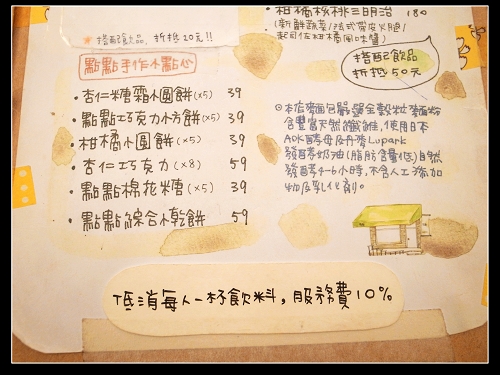 柑橘核桃三明治 180
(新鮮蔬菜/法式帶皮火腿/
起司佐柑橘風味醬)
*搭配飲品,折抵20元!!
搭配飲品
折抵50元
點點手作小點心
·杏仁糖霜小圓餅(x5) 39
·點點巧克力小方餅(x5) 39
·柑橘小圓餅(x5) 39
·杏仁巧克力(x8) 59
·點點棉花糖(x5) 39
·點點綜合小乾餅 59
◎本店麵包嚴選全穀粒麵粉
含豐富天然纖維,使用日本
AOK酵母及丹麥Lupark
發酵奶油(脂肪含量低)自然
發酵4-6小時,不含人工添加
物及乳化劑。
低消每人一杯飲料,服務費10%